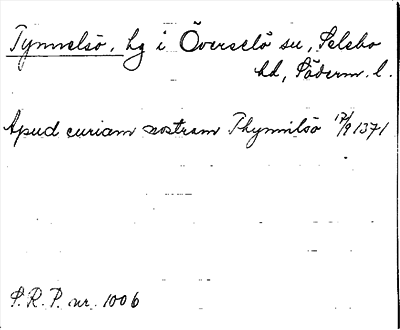 Tynnelsö, hg i Överselö sn, Selebo
hd, Söderm. l.
Apud curiam nostram Thynnilsö 17/9 1371
S.R.P. nr. 1006